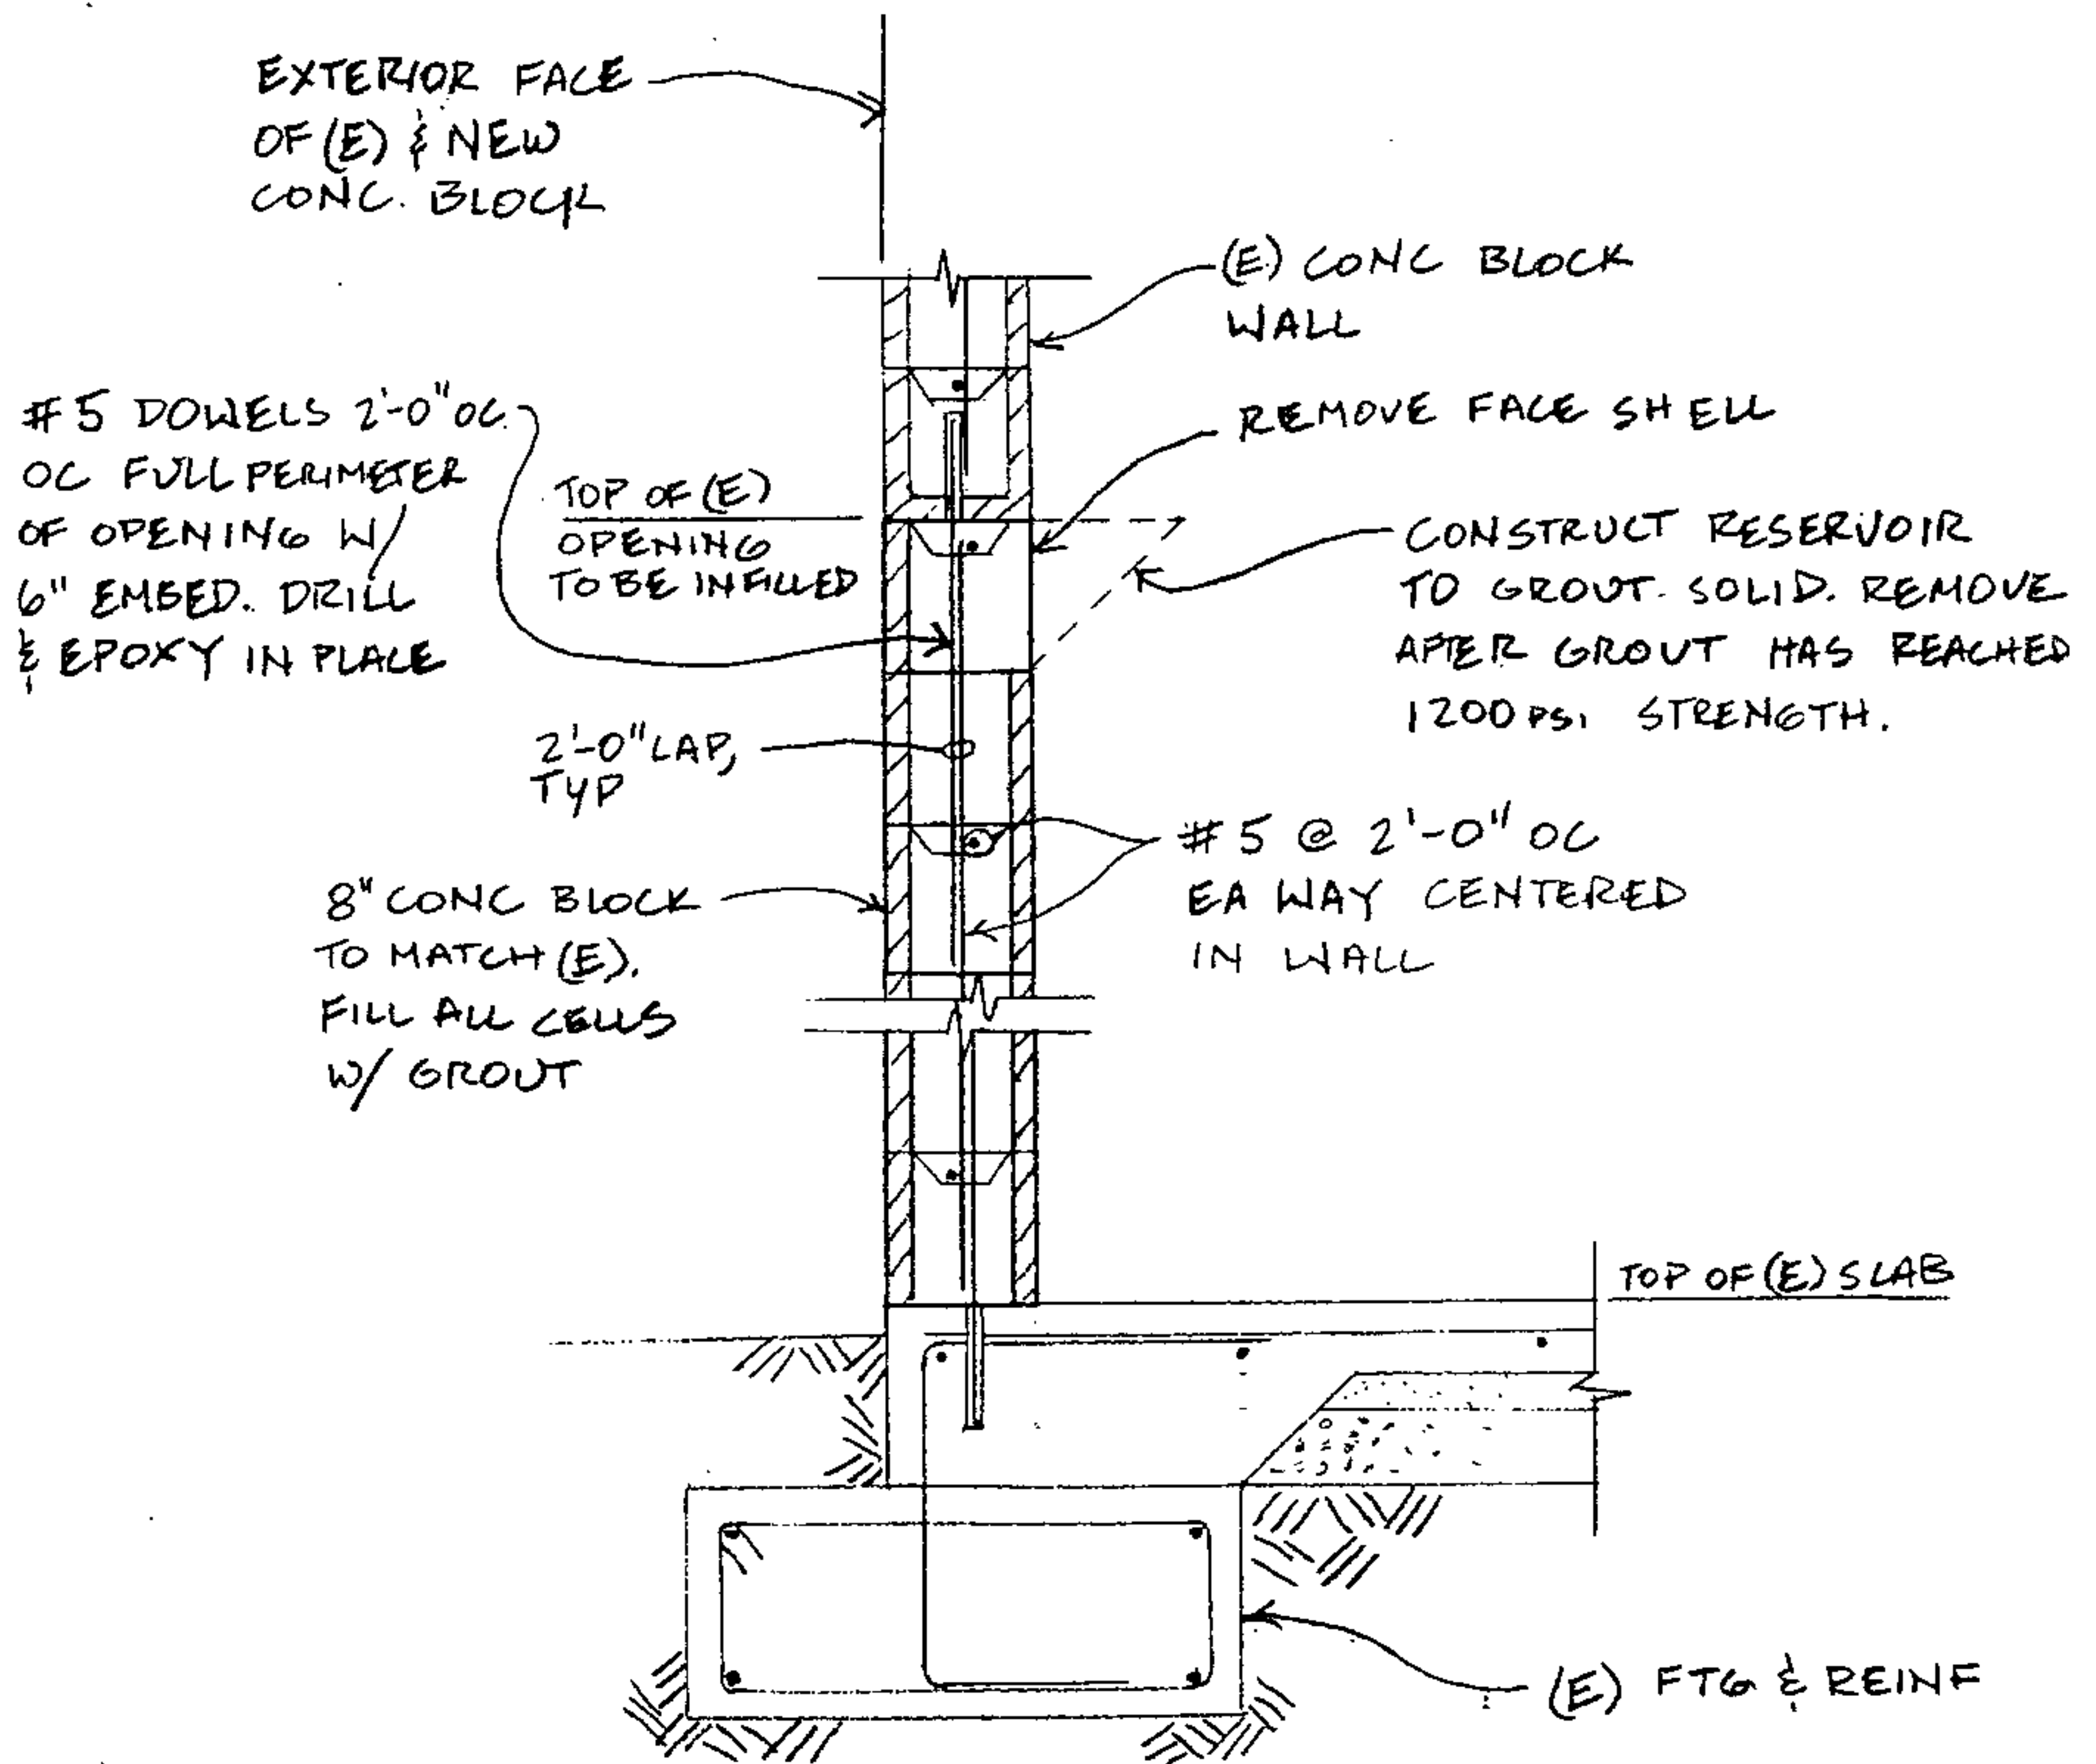 EXTERIOR FACE
OF (E) & NEW
CONC. BLOCK
(E) CONC BLOCK
WALL
REMOVE FACE SHELL
#5 DOWELS 2'-0" OC
OC FULL PERIMETER
OF OPENING W/
6" EMBED. DRILL
& EPOXY IN PLACE
TOP OF (E)
OPENING
TO BE INFILLED
CONSTRUCT RESERVOIR
TO GROUT SOLID. REMOVE
AFTER GROUT HAS REACHED
1200 PSI STRENGTH.
2'-0" LAP,
TYP
#5 @ 2'-0" OC
EA WAY CENTERED
IN WALL
8" CONC BLOCK
TO MATCH (E).
FILL ALL CELLS
W/ GROUT
TOP OF (E) SLAB
(E) FTG & REINF